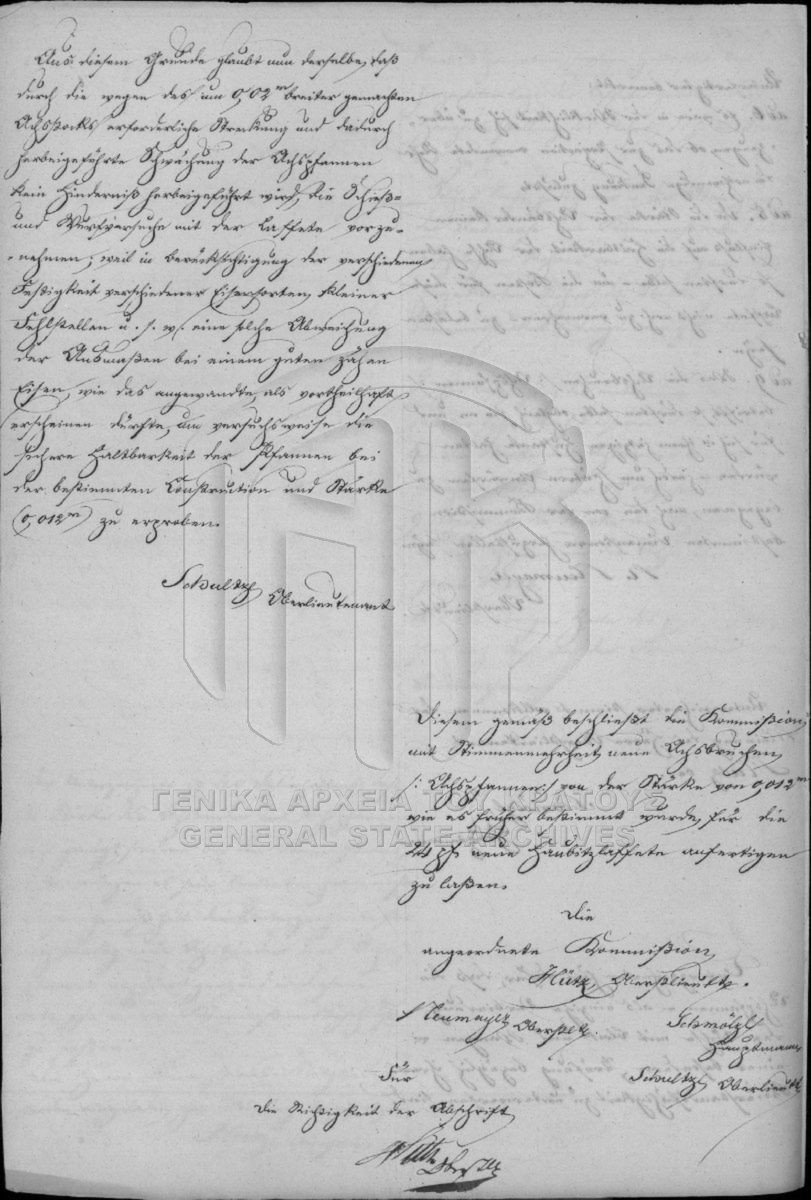 Aus diesem Grunde glaubt nun derselbe, daß
durch die wegen des um 0,02m breiter gemachten
Achsstocks erforderliche Streckung und dadurch
herbeigeführte Schwächung der Achspfannen
kein Hinderniß herbeigeführt wird, die Schieß-
und Wurfversuche mit der Laffete vorzu-
nehmen; weil in Berücksichtigung der verschiedenen
Festigkeit verschiedener Eisensorten, kleiner
Fehlstellen u. s. w. eine solche Abweichung
der Ausmaßen bei einem guten zähen
Eisen, wie das angewandte, als vortheilhaft
erscheinen dürfte, um versuchsweise die
sichere Haltbarkeit der Pfannen bei
der bestimmten Construction und Stärke
(0,012m) zu erproben.
Schultze Oberlieutenant
Diesem gemäß beschließt die Kommißion
mit Stimmenmehrheit neue Achsbruchen
/: Achspfannen :/ von der Stärke von 0,012m
wie es früher bestimmt wurde, für die
24 pf. neue Haubitzlaffete anfertigen
zu laßen.
Die
angeordnete Kommißion
Hütz, Oberstlieut.
Neumayer Oberstlt.
Schmölzl
Hauptmann
Schultze Oberlieut.
Für
die Richtigkeit der Abschrift
Hütz
Oberstlt
ΓΕΝΙΚΑ ΑΡΧΕΙΑ ΤΟΥ ΚΡΑΤΟΥΣ
GENERAL STATE ARCHIVES